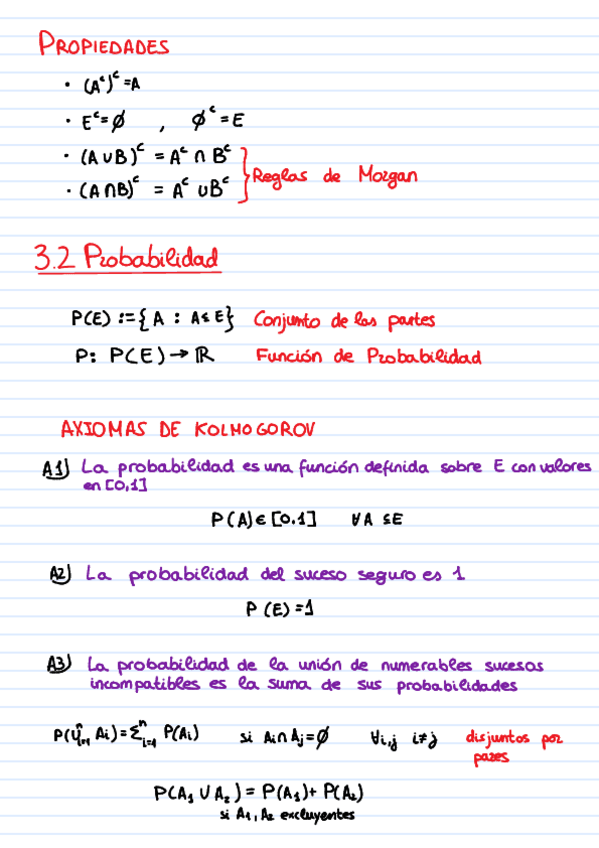 PROPIEDADES
· (Aᶜ)ᶜ=A
· Eᶜ=∅ , ∅ᶜ=E
· (A∪B)ᶜ = Aᶜ ∩ Bᶜ
· (A∩B)ᶜ = Aᶜ ∪Bᶜ
Reglas de Morgan
3.2 Probabilidad
P(E) := { A : A⊆E} Conjunto de las partes
P: P(E)→ℝ Función de Probabilidad
AXIOMAS DE KOLMOGOROV
A1) La probabilidad es una función definida sobre E con valores
en [0,1]
P(A)∈[0.1] ∀A ⊆E
A2) La probabilidad del suceso seguro es 1
P(E)=1
A3) La probabilidad de la unión de numerables sucesos
incompatibles es la suma de sus probabilidades
P(⋃ⁿᵢ₌₁ Ai)=∑ⁿᵢ₌₁ P(Ai) si Ai∩Aj=∅ ∀i,j i≠j disjuntos por
pares
P(A₁ ∪ A₂) = P(A₁)+ P(A₂)
si A₁, A₂ excluyentes